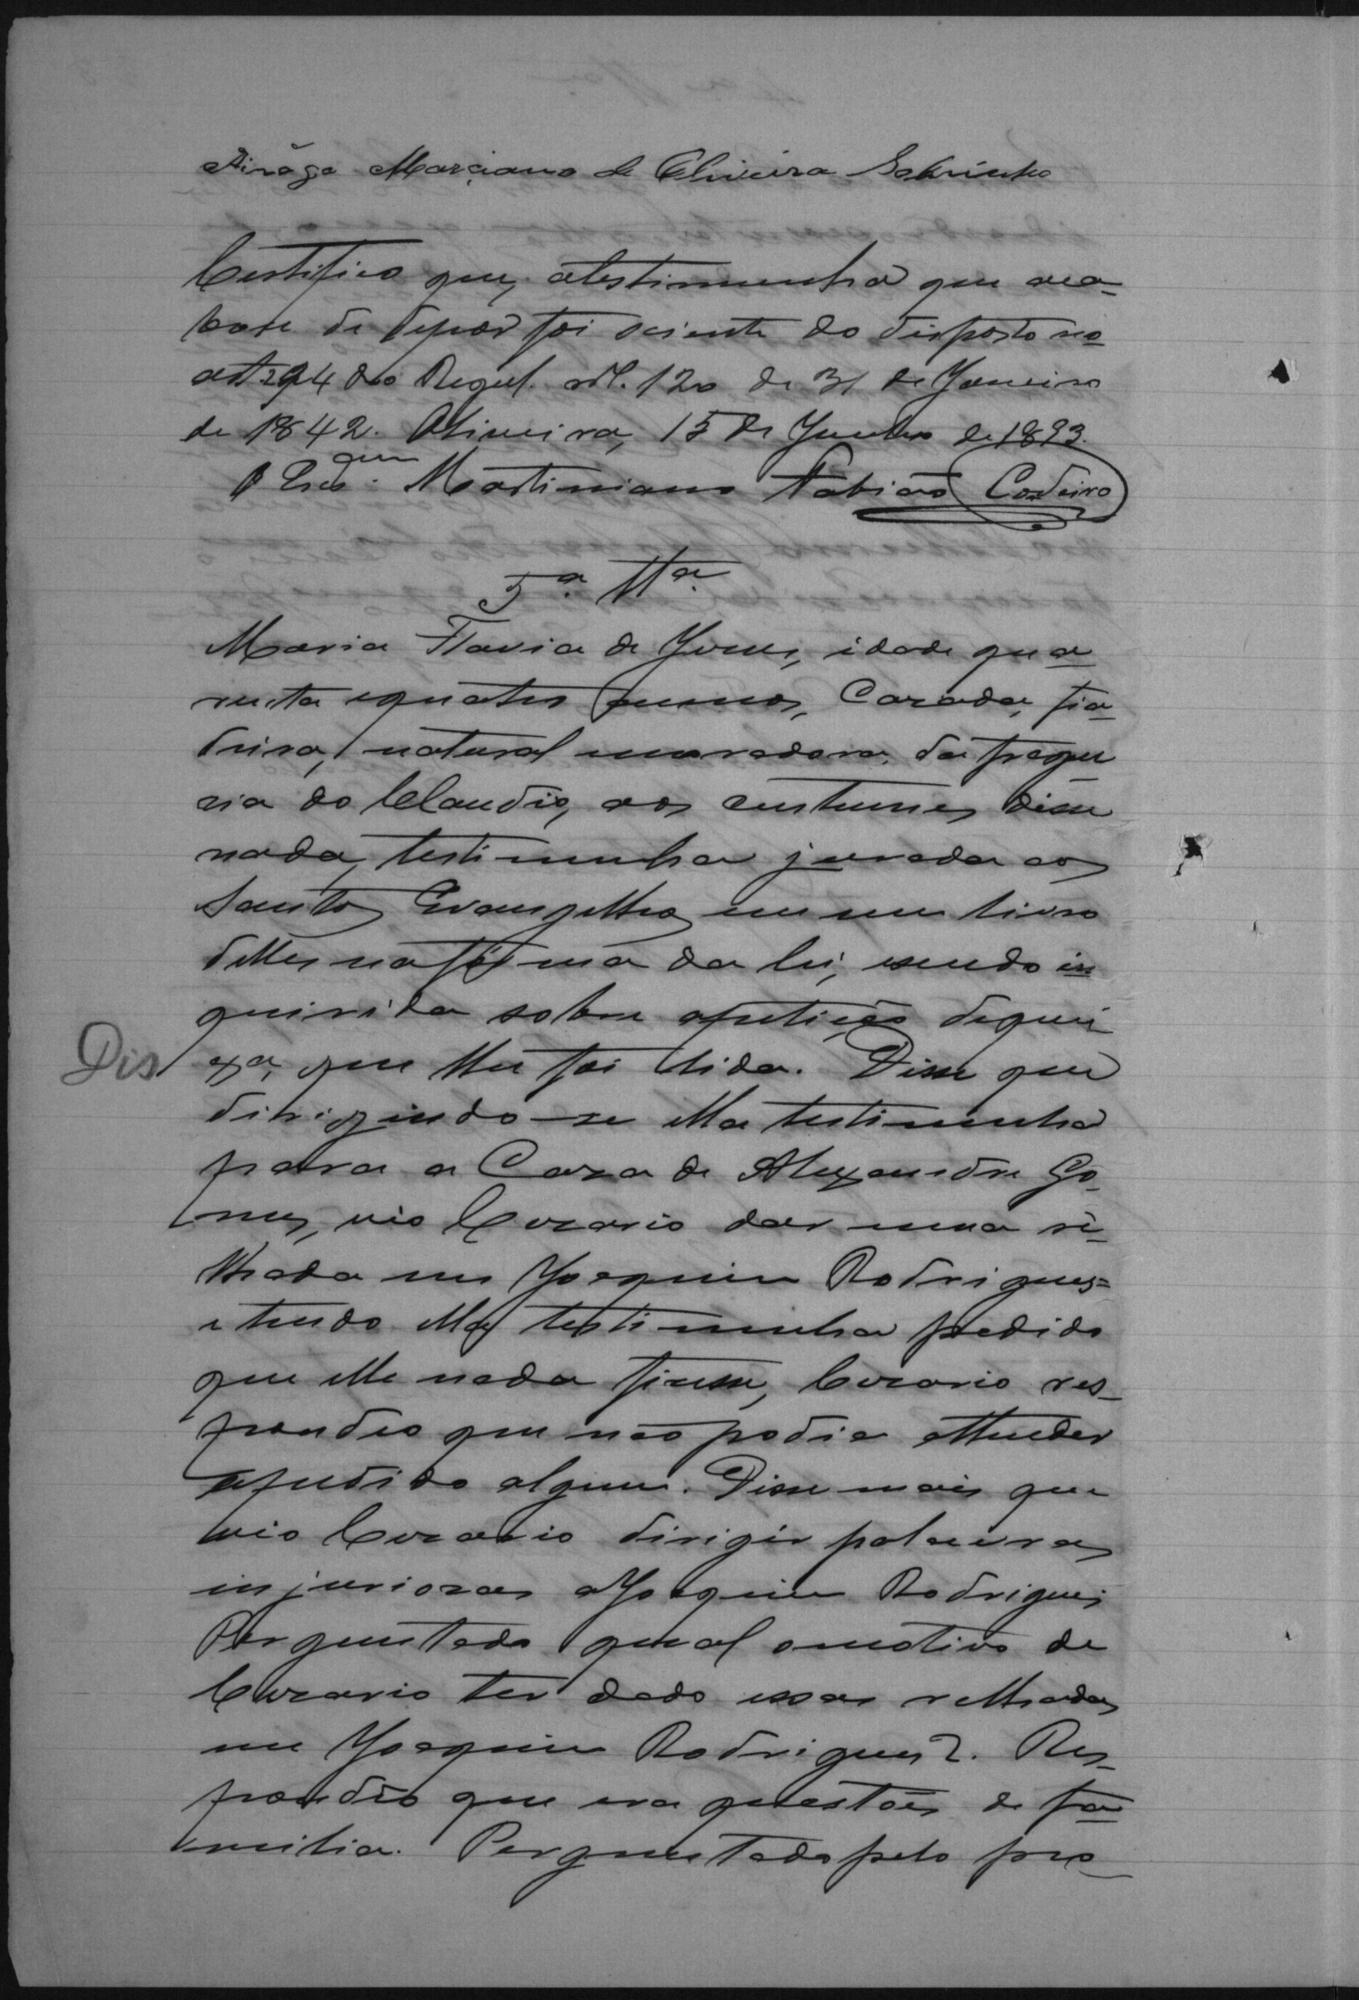 Marçiano de Oliveira Sobrinho
Certifico que, atestimunha que aca-
base de depor foi sciente do disposto no
art 294 do Regul. nº. 120 de 31 de Janeiro
de 1842. Oliveira, 15 de Junho de 1893.
O Escm. Martiniano Fabiano Cordeiro
5.ª Ttª
Maria Flavia de Jesus, idade qua
renta equatro annos, Cazada, fia-
deira, natural moradora, da fregue
zia do Claudio, aos custumes disse
nada, testimunha jurada aos
Santos Evangelhos em um livro
delles na forma da lei, esendo in
quirida sobre apetição dequei
Dis
xa, que lhe foi lida. Disse que
dirigindo-se ella testimunha
para a Caza de Alexandre Go-
mes, vio Cezario dar uma re-
lhada em Joaquim Rodrigues=
e tendo ella testimunha pedido
que elle nada fizesse, Cezario res-
pondeo que não podia attender
apedido algum. Disse mais que
vio Cezario dirigir palavras
injuriozas aJoaquim Rodrigues
Perguntado qual omotivo de
Cezario ter dado essas relhadas
em Joaquim Rodrigues?. Res-
pondeo que era questões de fa
milia. Perguntado pelo pro-